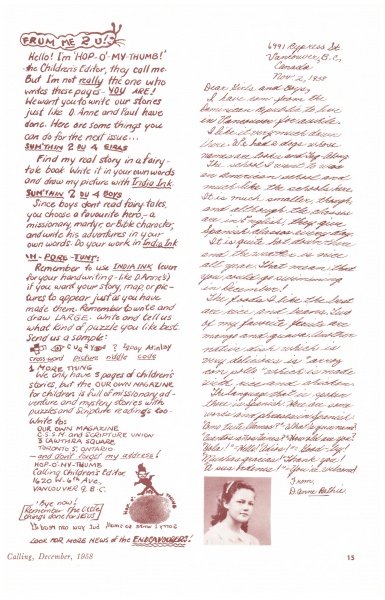 FROM ME 2 U!
Hello! I'm 'HOP-O'-MY-THUMB!'
the Children's Editor, they call me.
But I'm not really the one who
writes these pages - YOU ARE!
We want you to write our stories
just like D. Anne and Paul have
done. Here are some things you
can do for the next issue...
SUM'THIN 2 DU 4 GIRLS
Find my real story in a fairy-
tale book. Write it in your own words
and draw my picture with India Ink.
SUM'THIN 2 DU 4 BOYS
Since boys don't read fairy tales,
you choose a favourite hero, - a
missionary, martyr, or Bible character,
and write his adventures in your
own words. Do your work in India Ink
IM-PORE-TUNT:
Remember to use INDIA INK (even
for your handwriting - like D. Anne's)
if you want your story, map, or pic-
tures to appear just as you have
made them. Remember to write and
draw LARGE. Write and tell us
what kind of puzzle you like best.
Send us a sample:
crossword picture riddle code
1 MORE THING
We only have 3 pages of children's
stories, but the OUR OWN MAGAZINE
for children is full of missionary ad-
venture and mystery stories with
puzzles and Scripture readings too.
Write to:
OUR OWN MAGAZINE
C.S.S.M. and SCRIPTURE UNION
3 CAWTHRA SQUARE
TORONTO 5, ONTARIO
- and don't forget my address!
HOP-O'-MY-THUMB
Children's Editor
1620 W. 6th Ave,
VANCOUVER 9, B.C.
'Bye now!
Remember the little
things done for JESUS!
LOOK FOR MORE NEWS of the ENDEAVOURERS!
6991 Cypress St.
Vancouver, B.C.,
Canada
Nov. 2, 1958
Dear Girls and Boys,
I have come from the
Dominican Republic to live
in Vancouver for awhile.
I like it very much down
there. We had 2 dogs whose
names are
The school I went to was
an American school and
much like the schools here.
It is much smaller, though,
and although the classes
are in English, they give
Spanish classes every day.
It is quite hot down there
and the weather is nice
all year. That means that
you could go swimming
in December!
The foods I like the best
are rice and beans. Two
of my favorite fruits are
mango and guava. Another
native dish which is
very delicious is "arroz
con pollo" which is made
with rice and chicken.
The language that is spoken
there is Spanish. Here are some
words and phrases in Spanish:
¿Como se llama? - What's your name?
¿Cuantos años tienes? - How old are you?
Hola! - Hello! Adios! - Good-by!
Muchas gracias! - Thank you!
- You're welcome!
From,
D. Anne
Calling, December, 1958
15